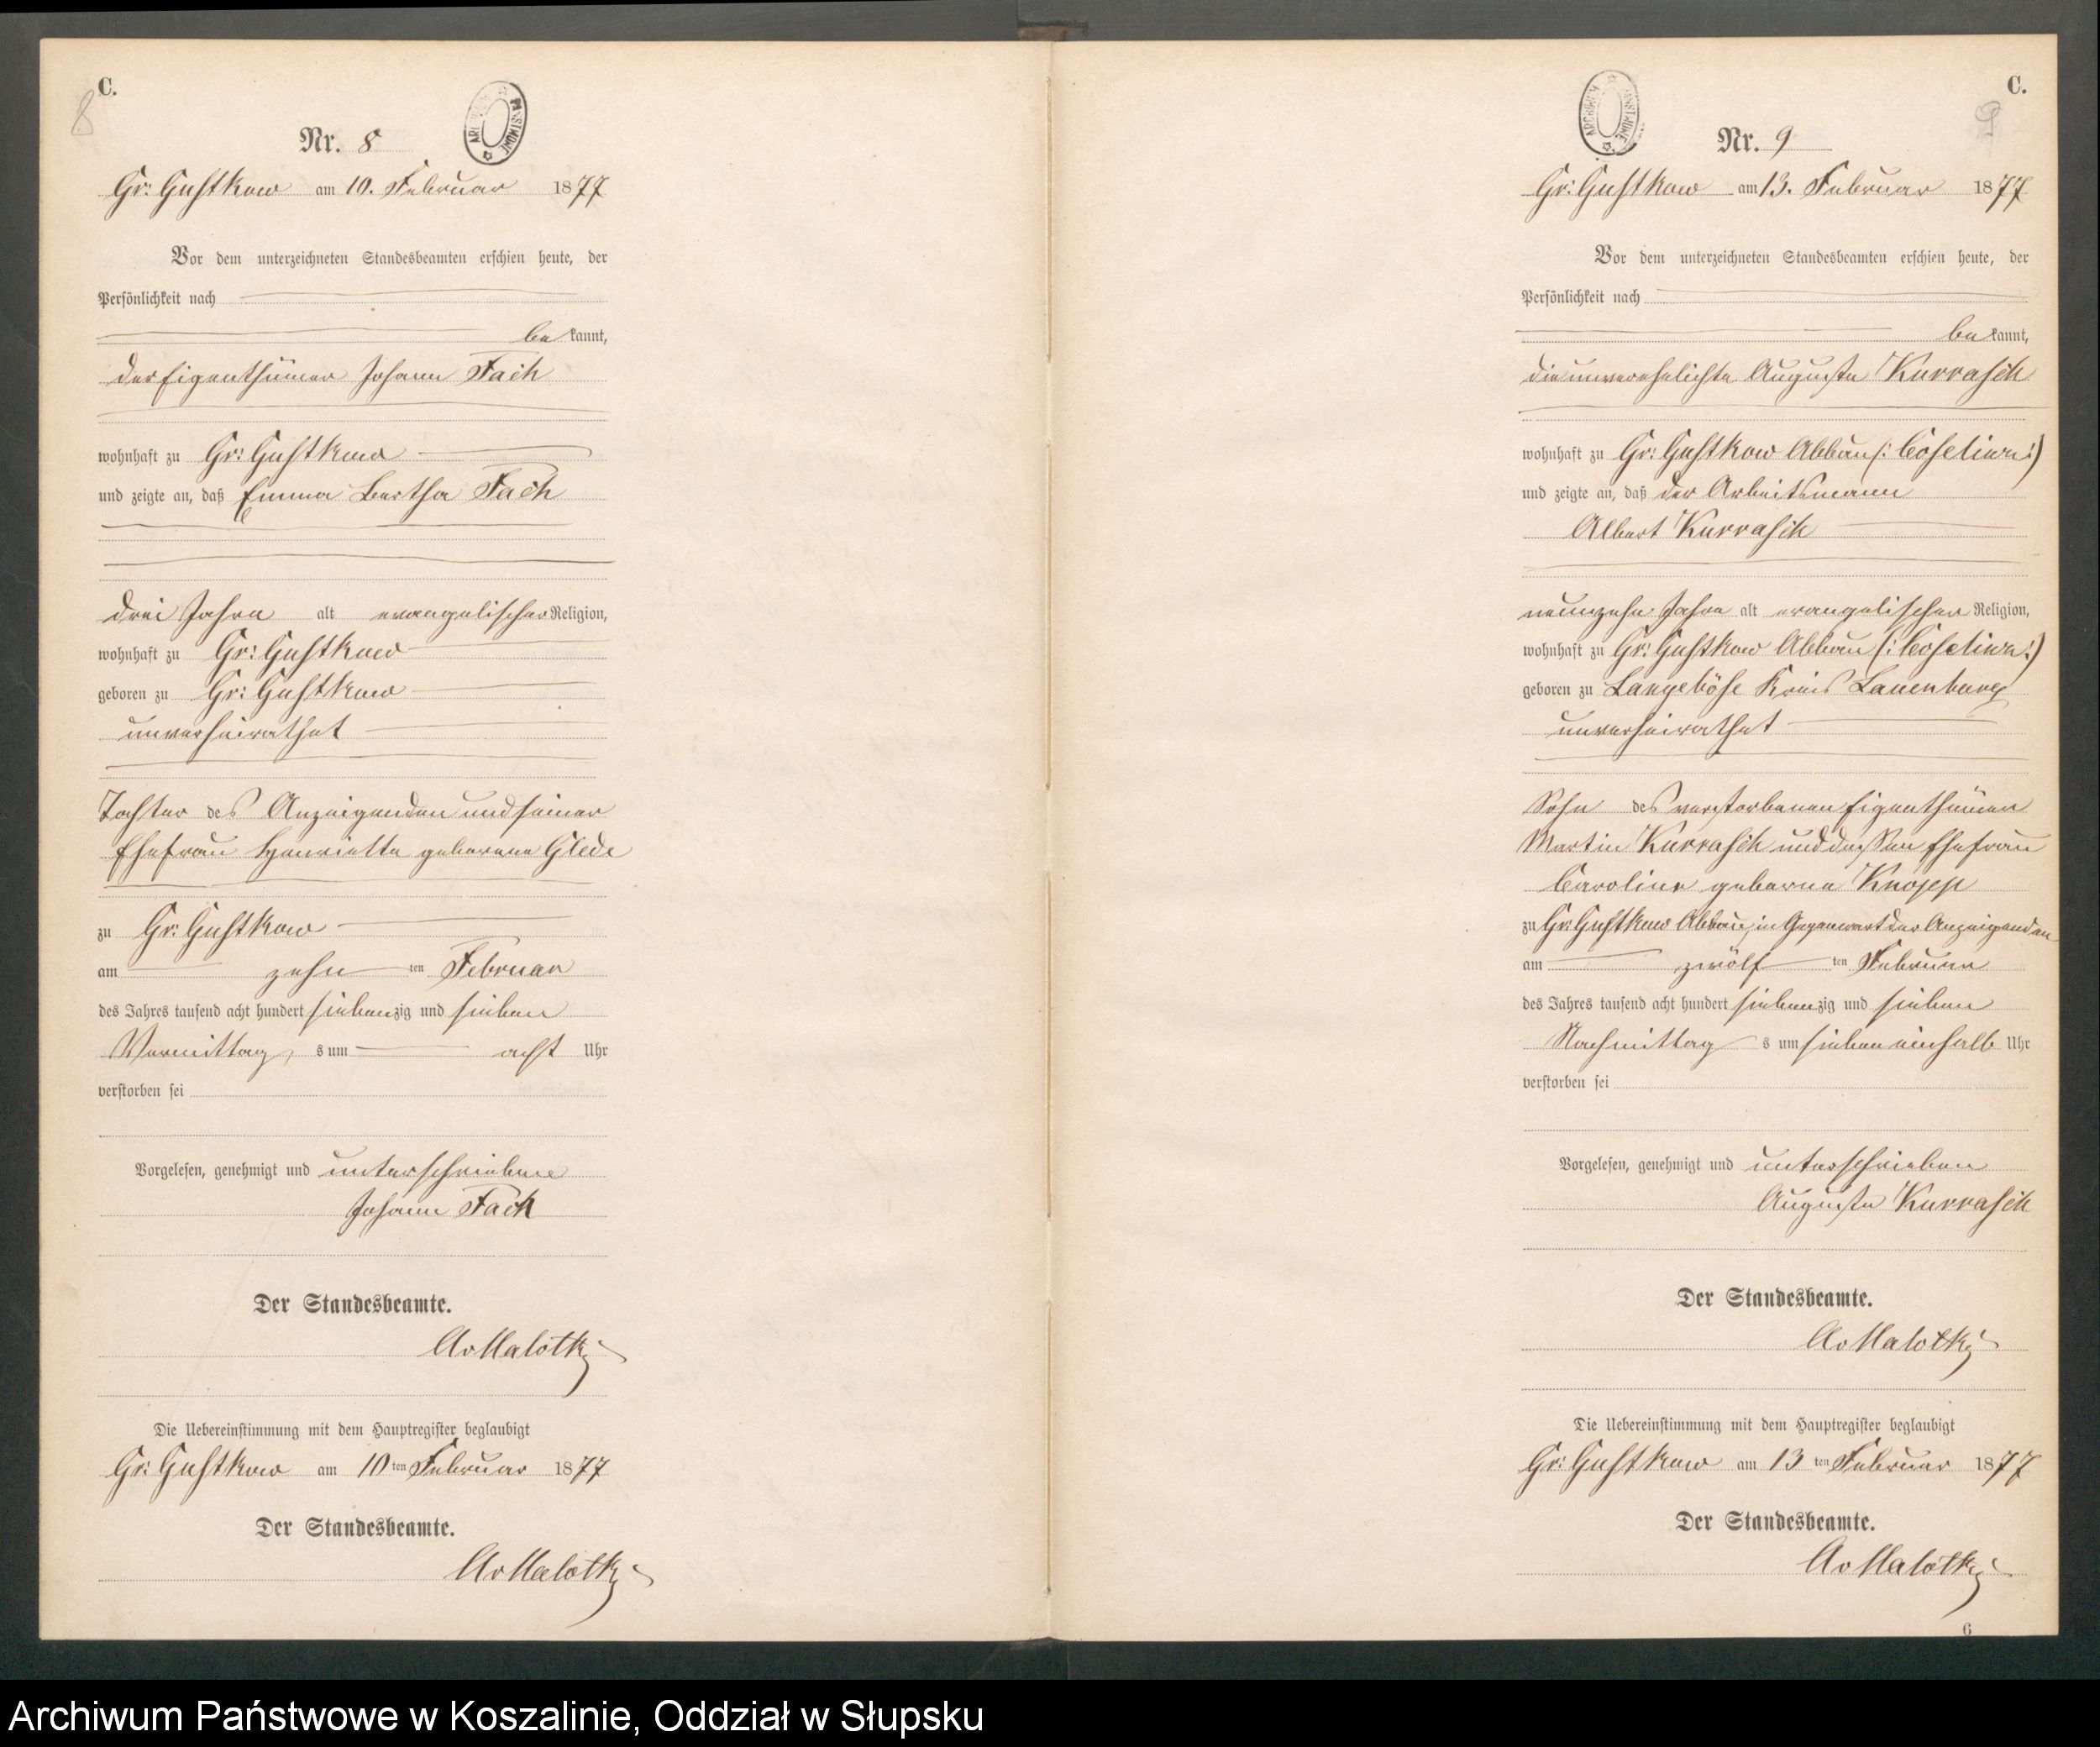 C.
8
Nr. 8
Gr: Gustkow am 10. Februar 1877
Vor dem unterzeichneten Standesbeamten erschien heute, der
Persönlichkeit nach
be kannt,
der Eigenthümer Johann Fach
wohnhaft zu Gr: Gustkow
und zeigte an, daß Emma Bertha Fach
drei Jahre alt evangelischer Religion,
wohnhaft zu Gr: Gustkow
geboren zu Gr: Gustkow
unverheirathet
Tochter des Anzeigenden und seiner
Ehefrau Henriette geborene Glede
zu Gr: Gustkow
am zehn ten Februar
des Jahres tausend acht hundert siebenzig und sieben
Vormittag s um acht Uhr
verstorben sei
Vorgelesen, genehmigt und unterschrieben
Johann Fach
Der Standesbeamte.
AvMalotky
Die Uebereinstimmung mit dem Hauptregister beglaubigt
Gr: Gustkow am 10 ten Februar 1877
Der Standesbeamte.
AvMalotky
C.
9
Nr. 9
Gr: Gustkow am 13. Februar 1877
Vor dem unterzeichneten Standesbeamten erschien heute, der
Persönlichkeit nach
be kannt,
die unverehelichte Auguste Kurrasch
wohnhaft zu Gr: Gustkow Abbau
und zeigte an, daß der Arbeitsmann
Albert Kurrasch
neunzehn Jahre alt evangelischer Religion,
wohnhaft zu Gr: Gustkow Abbau
geboren zu Langeböse Kreis Lauenburg
unverheirathet
Sohn des verstorbenen Eigenthümer
Martin Kurrasch und dessen Ehefrau
Caroline geborne Knopp
zu Gr: Gustkow Abbau, in Gegenwart der Anzeigenden
am zwölf ten Februar
des Jahres tausend acht hundert siebenzig und sieben
Nachmittag s um sieben einhalb Uhr
verstorben sei
Vorgelesen, genehmigt und unterschrieben
Auguste Kurrasch
Der Standesbeamte.
AvMalotky
Die Uebereinstimmung mit dem Hauptregister beglaubigt
Gr: Gustkow am 13 ten Februar 1877
Der Standesbeamte.
AvMalotky
6
Archiwum Państwowe w Koszalinie, Oddział w Słupsku